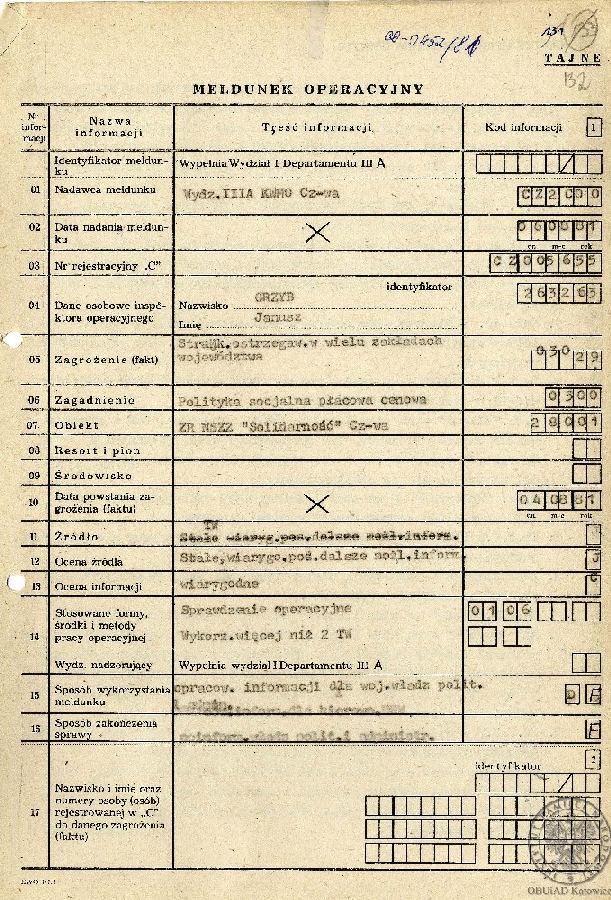 TAJNE
132
MELDUNEK OPERACYJNY
Nr infor-macji
Nazwa informacji
Treść informacji
Kod informacji
1
Identyfikator meldun-ku
Wypełnia Wydział I Departamentu III A
01 Nadawca meldunku
Wydz.IIIA KWMO Cz-wa
CZ2C00
02 Data nadania meldun-ku
060881
dn m-c rok
03 Nr rejestracyjny „C"
CZ005655
04 Dane osobowe inspe-ktora operacyjnego
identyfikator
Nazwisko GRZYB
Imię Janusz
263263
05 Zagrożenie (fakt)
Strajk.ostrzegaw.w wielu zakładach
województwa
03029
06 Zagadnienie
Polityka socjalna płacowa cenowa
0300
07. Obiekt
ZR NSZZ "Solidarność" Cz-wa
28001
08 Resort i pion
09 Środowisko
10 Data powstania za-grożenia (faktu)
040881
dn m-c rok
11 Źródło
TW
Stałe wiaryg.pos.dalsze możl.inform.
12 Ocena źródła
Stałe,wiaryg.poś.dalsze możl.inform
J
13 Ocena informacji
wiarygodne
C
14 Stosowane formy, środki i metody pracy operacyjnej
Sprawdzenie operacyjne
Wykorz.więcej niż 2 TW
0106
Wydz. nadzorujący
Wypełnia wydział I Departamentu III A
15 Sposób wykorzystania meldunku
opracow. informacji dla woj.władz polit.
D F
16 Sposób zakończenia sprawy
poinform.władz polit.i administr.
F
17 Nazwisko i imię oraz numery osoby (osób) rejestrowanej w „C" do danego zagrożenia (faktu)
identyfikator
OBUiAD Katowice